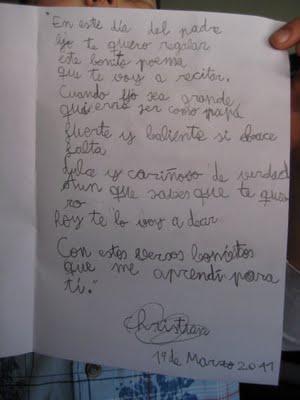 "En este día del padre
yo te quero regalar
este bonito poema
que te voy a recitar.
Cuando yo sea grande
quierro ser como papá
fuerte y baliente si abace
falta
dulce y cariñoso de verdad
Aun que sabes que te quie
ro
hoy te lo voy a dear
Con estos versos bonitos
que me aprendí para
tí."
Christian
19 de Marzo 2011